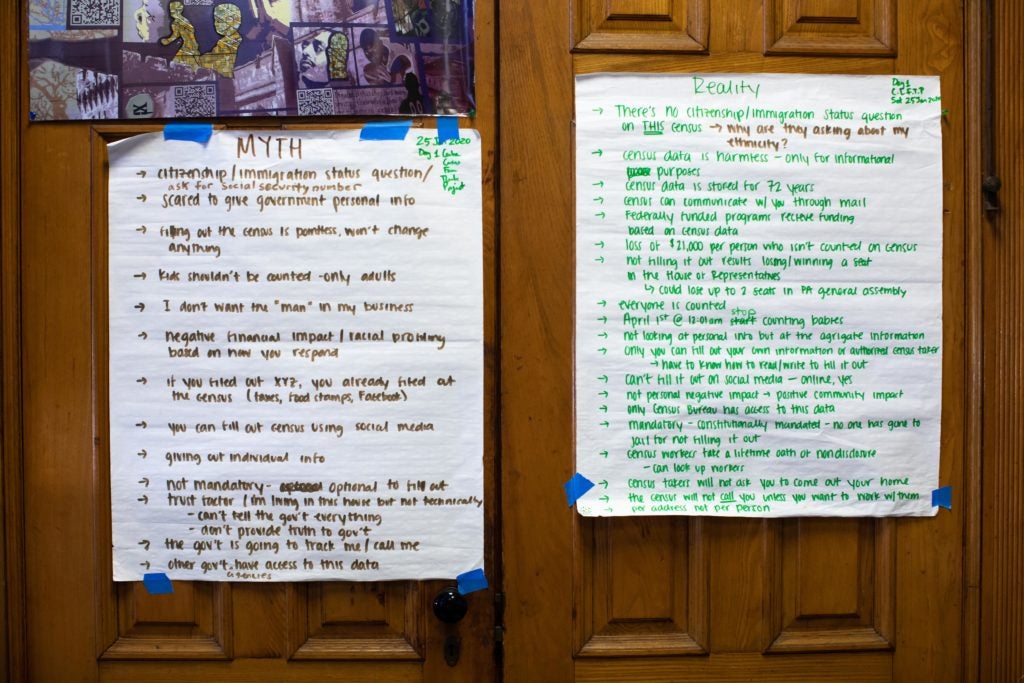 MYTH
25 Jan 2020
Day 1
→ citizenship/immigration status question/
ask for social security number
→ scared to give government personal info
→ filling out the census is pointless, won't change
anything
→ Kids shouldn't be counted - only adults
→ I don't want the "man" in my business
→ negative financial impact / racial profiling
based on how you respond
→ if you filed out XYZ, you already filed out
the census (taxes, food stamps, Facebook)
→ you can fill out census using social media
→ giving out individual info
→ not mandatory - optional to fill out
→ trust factor / I'm living in this house but not technically
- can't tell the gov't everything
- don't provide truth to gov't
→ the gov't is going to track me / call me
→ other gov't. have access to this data
agencies
Reality
Day 1
Sat 25 Jan 2020
→ There's no citizenship/immigration status question
on THIS census → why are they asking about my
ethnicity?
→ census data is harmless - only for informational
purposes
→ census data is stored for 72 years
→ census can communicate w/ you through mail
→ Federally funded programs recieve funding
based on census data
→ loss of $21,000 per person who isn't counted on census
→ not filling it out results losing/winning a seat
in the House of Representatives
↳ could lose up to 2 seats in PA general assembly
→ everyone is counted
stop
→ April 1st @ 12:01am start counting babies
→ not looking at personal info but at the agrigate information
→ Only you can fill out your own information or authorized census taker
→ have to know how to read/write to fill it out
→ can't fill it out on social media - online, yes
→ not personal negative impact → positive community impact
→ only Census Bureau has access to this data
→ mandatory - constitutionally mandated - no one has gone to
jail for not filling it out
→ census workers take a lifetime oath of nondisclosure
- can look up workers
→ census takers will not ask you to come out your home
→ the census will not call you unless you want to work w/ them
→ per address not per person